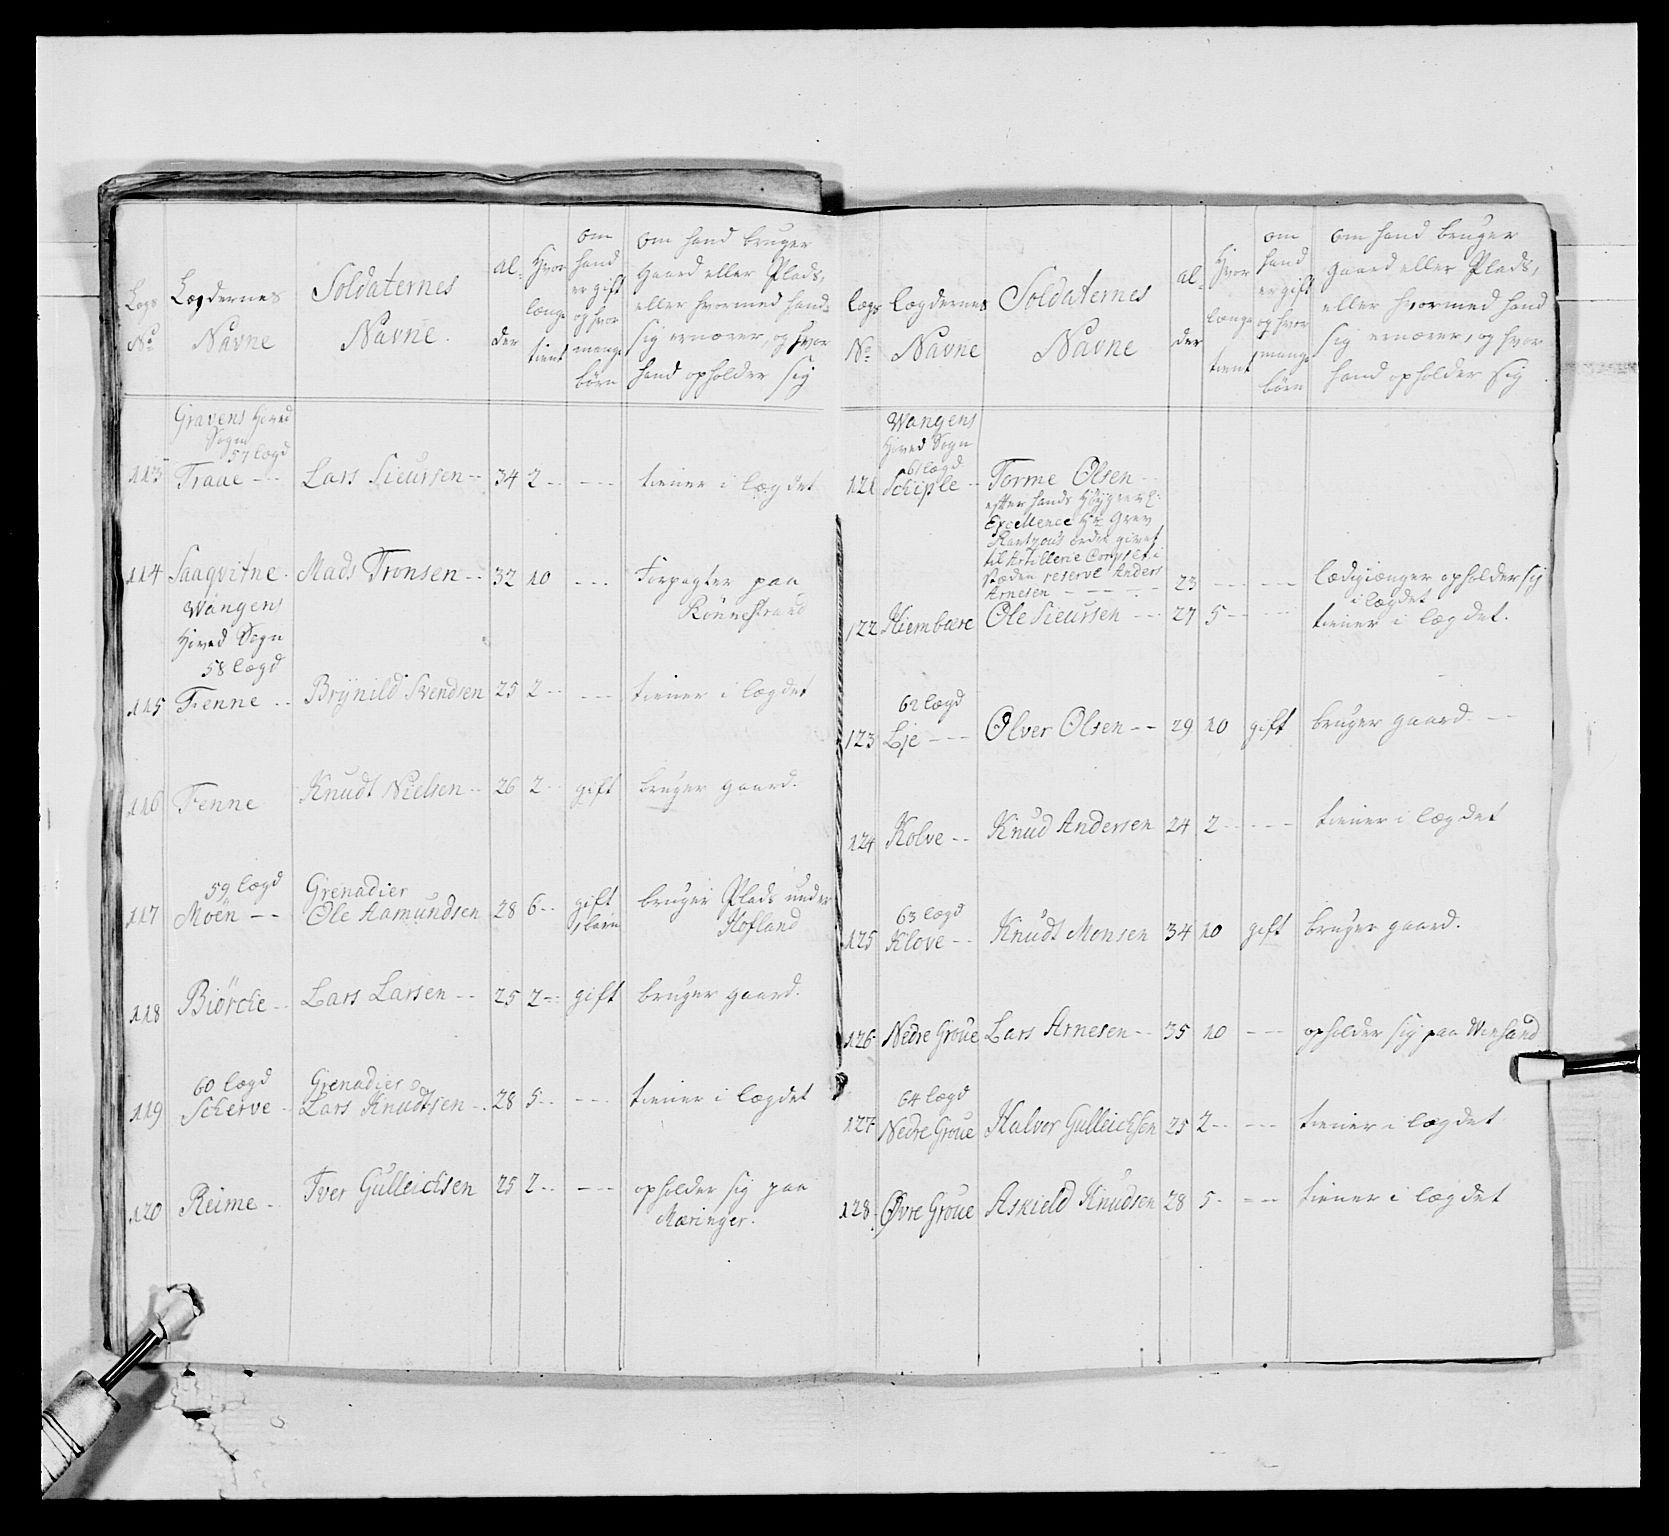 Legs No
Lægdernes Navne
Soldaternes Navne.
al-der
Hvor længe tient
om hand er gift og hvor mange børn
om hand bruger Gaard eller Plads, eller hvormed hand sig ernærer, og hvor hand opholder sig
Gravens Hoved Sogn
57 lægd
113 Traae -- Lars Sieursen -- 34 2 -- --- tiener i lægdet
114 Saaqvitne. Mads Tronsen -- 32 10 --- Forpagter paa
Rønnestrand
Wangens
Hoved Sogn
58 lægd
115 Fenne -- Brÿnild Svendsen 25 2 -- --- tiener i lægdet
116 Fenne Knudt Nielsen -- 26 2 -- gift bruger gaard.
59 lægd Grenadier
117 Moen -- Ole Aamundsen 28 6 -- gift bruger Plads under
børn Hofland
118 Biörche -- Lars Larsen -- 25 2 -- gift bruger gaard.
60 lægd Grenadier
119 Scherve - Lars Knudtsen -- 28 5 -- --- tiener i lægdet
120 Reime - Iver Gulleichsen 25 2 -- --- opholder sig paa
Mæringer.
lægs No
lægdernes Navne
Soldaternes Navne
al-der
Hvor længe tient
om hand er gift og hvor mange børn
om hand bruger gaard eller Plads, eller hvormed hand sig ernærer, og hvor hand opholder sig
Wangens
Hoved Sogn
61 lægd
121 Schiple -- Torme Olsen
efter hands
Excellence Hr Grev
ordre givet
til Artillerie Corpset i
stæden reserve Anders
Arnesen ---- 23 --- --- lædigiænger opholder sig
i lægdet
122 Kiembære Ole Sieursen --- 27 5 -- --- tiener i lægdet.
62 lægd
123 Lje --- Olver Olsen -- 29 10 gift bruger gaard. --
124 Kolve -- Knud Andersen 24 2 -- --- tiener i lægdet
63 lægd
125 Klove -- Knudt Monsen 34 10 gift bruger gaard.
126 Nedre Groue Lars Arnesen -- 35 10 --- opholder sig paa
64 lægd
127 Nedre Groue Halvor Gulleichsen 25 2 -- --- tiener i lægdet
128. Øvre Groue Askield Knudsen 28 5 - --- tiener i lægdet